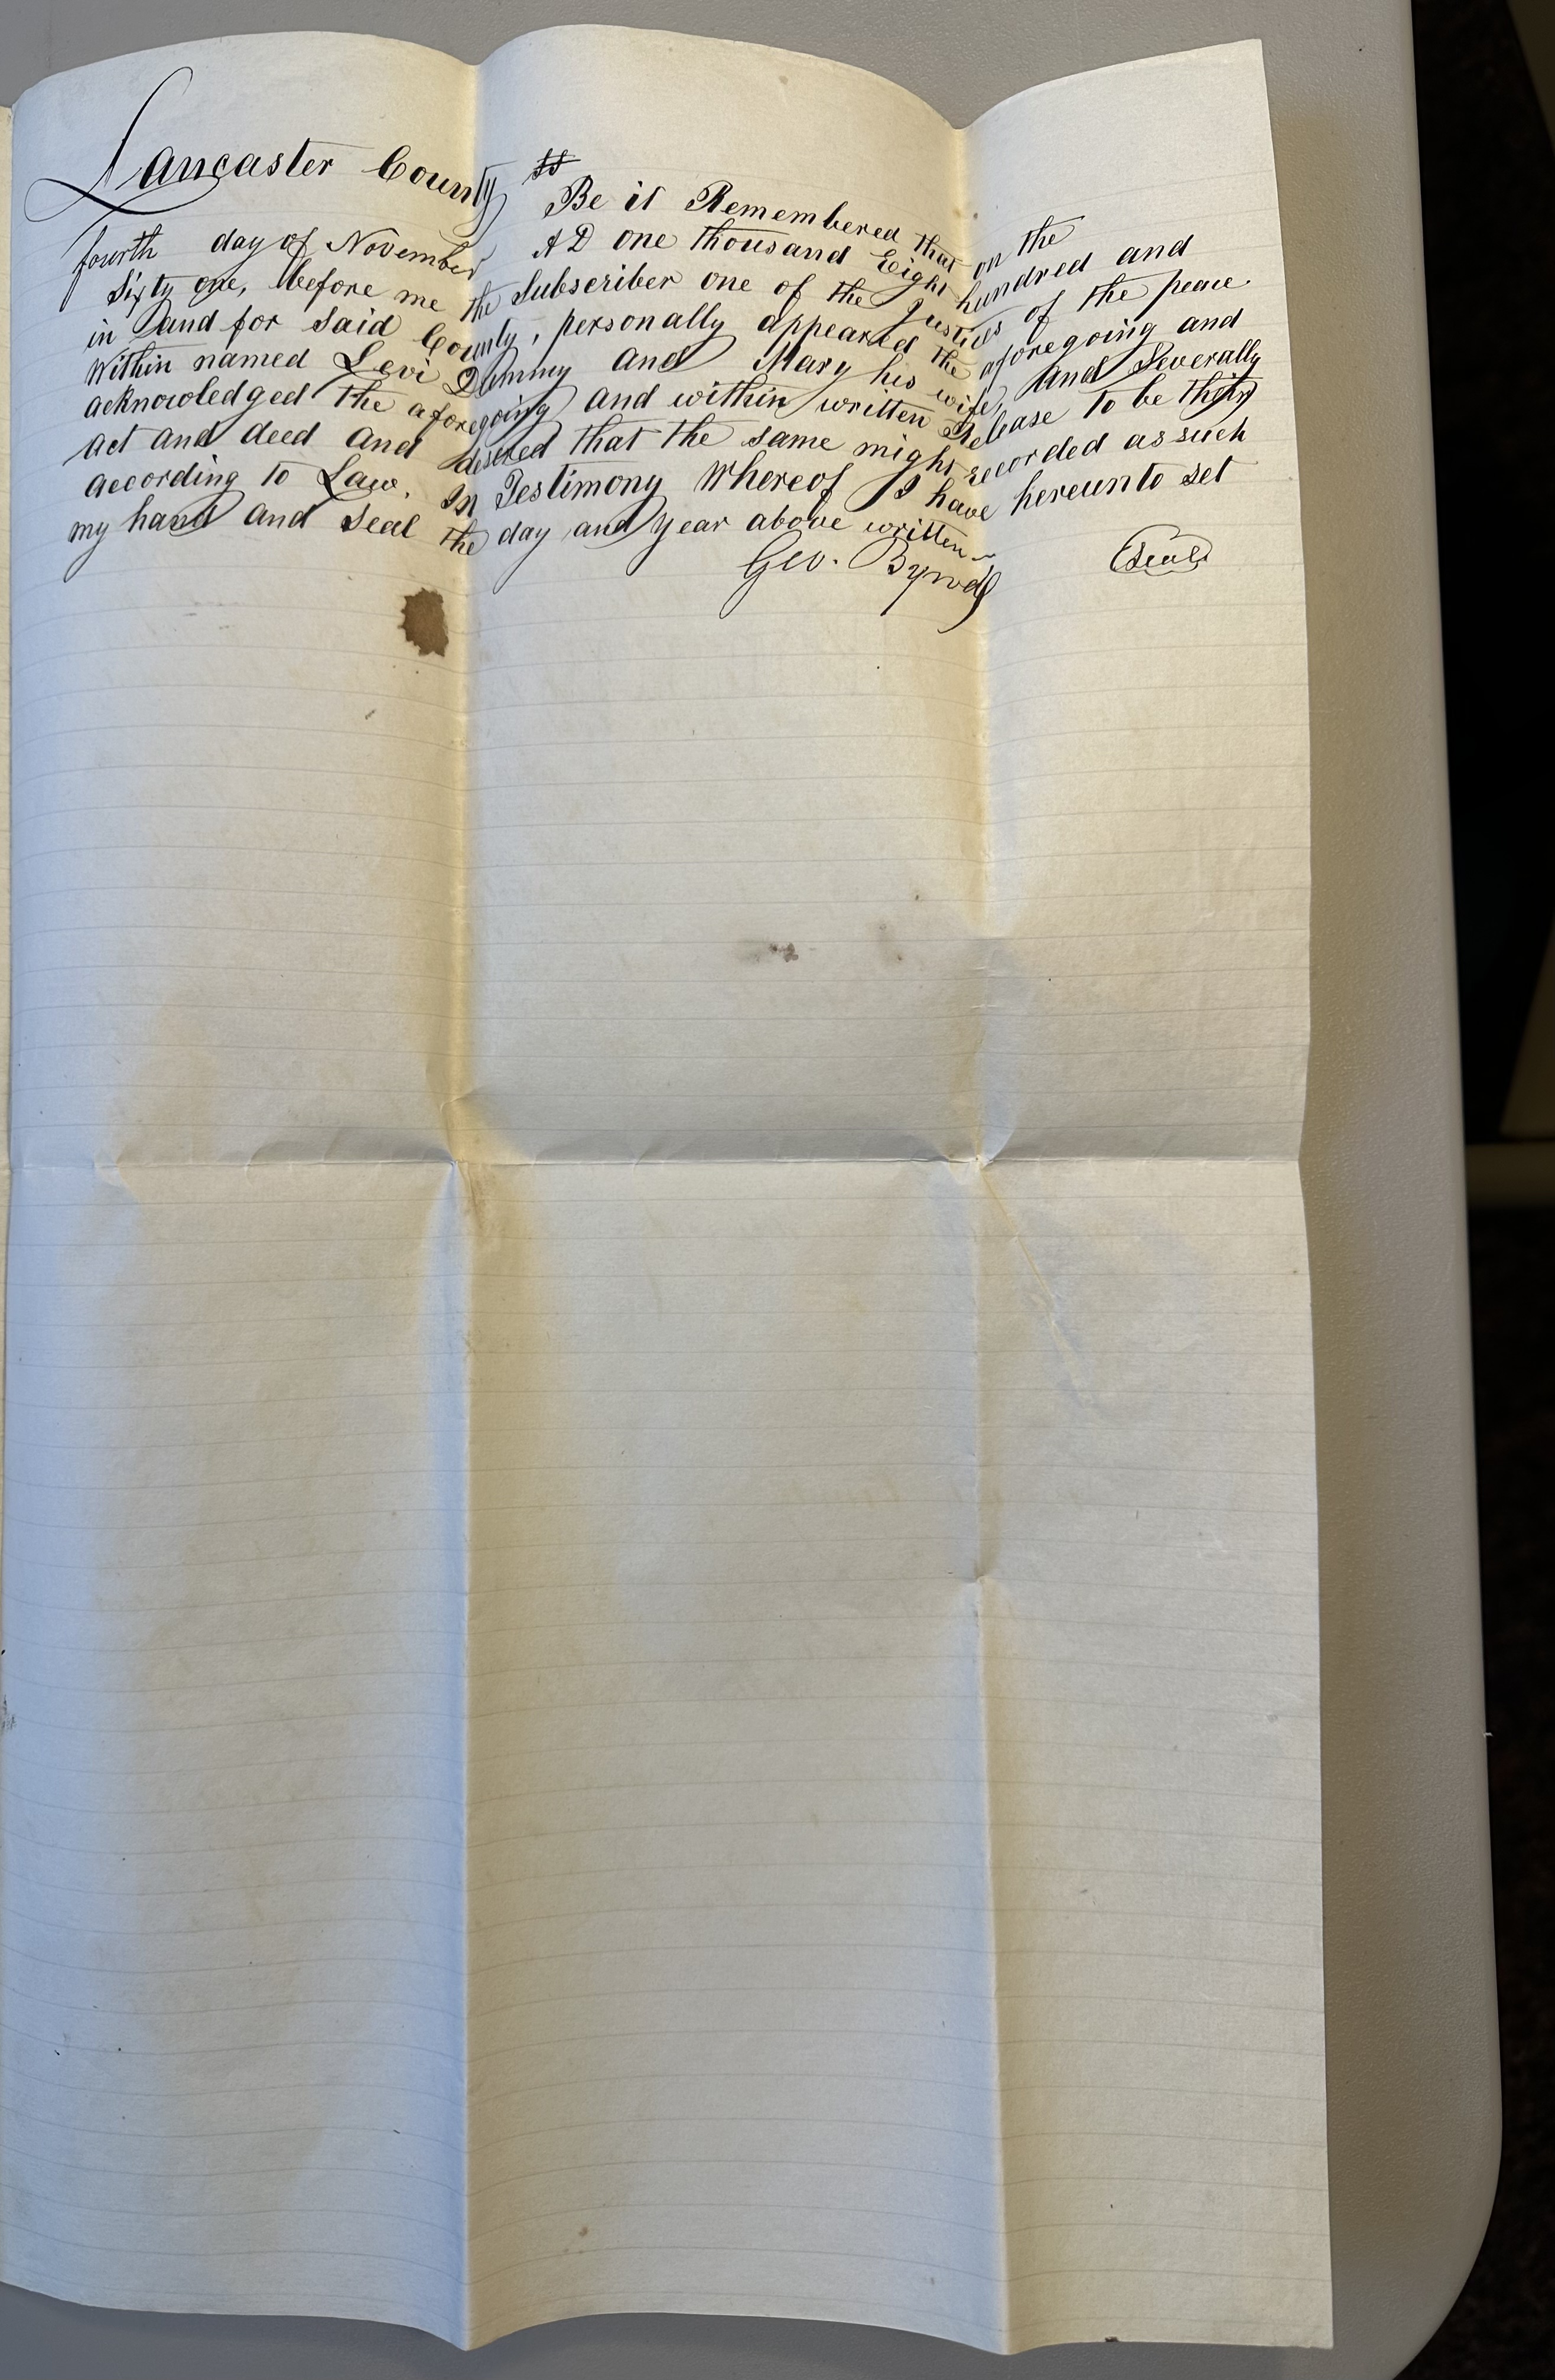 Lancaster County ss
Be it Remembered that on the
fourth day of November A D one thousand Eight hundred and
Sixty one, before me the Subscriber one of the Justices of the peace
in and for said County, personally appeared the aforegoing and
within named Levi Dummy and Mary his wife, and Severally
acknowledged the aforegoing and within written Release to be their
act and deed and desired that the same might recorded as such
according to Law. In Testimony Whereof I have hereunto set
my hand and Seal the day and year above written
Geo. Byrod
Seal